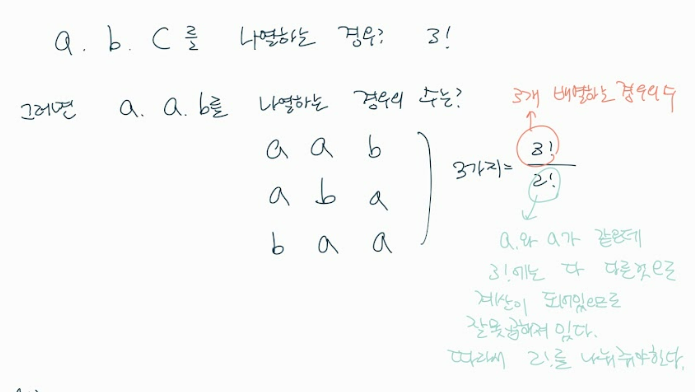 a. b. c를 나열하는 경우? 3!
그러면 a. a. b를 나열하는 경우의 수는?
a a b
a b a
b a a
3가지 = 3!/2!
3개 배열하는 경우의 수
a와 a가 같은데
3!에는 다 다른것으로
계산이 되어있으므로
잘못곱해져 있다.
따라서 2!를 나눠줘야한다.